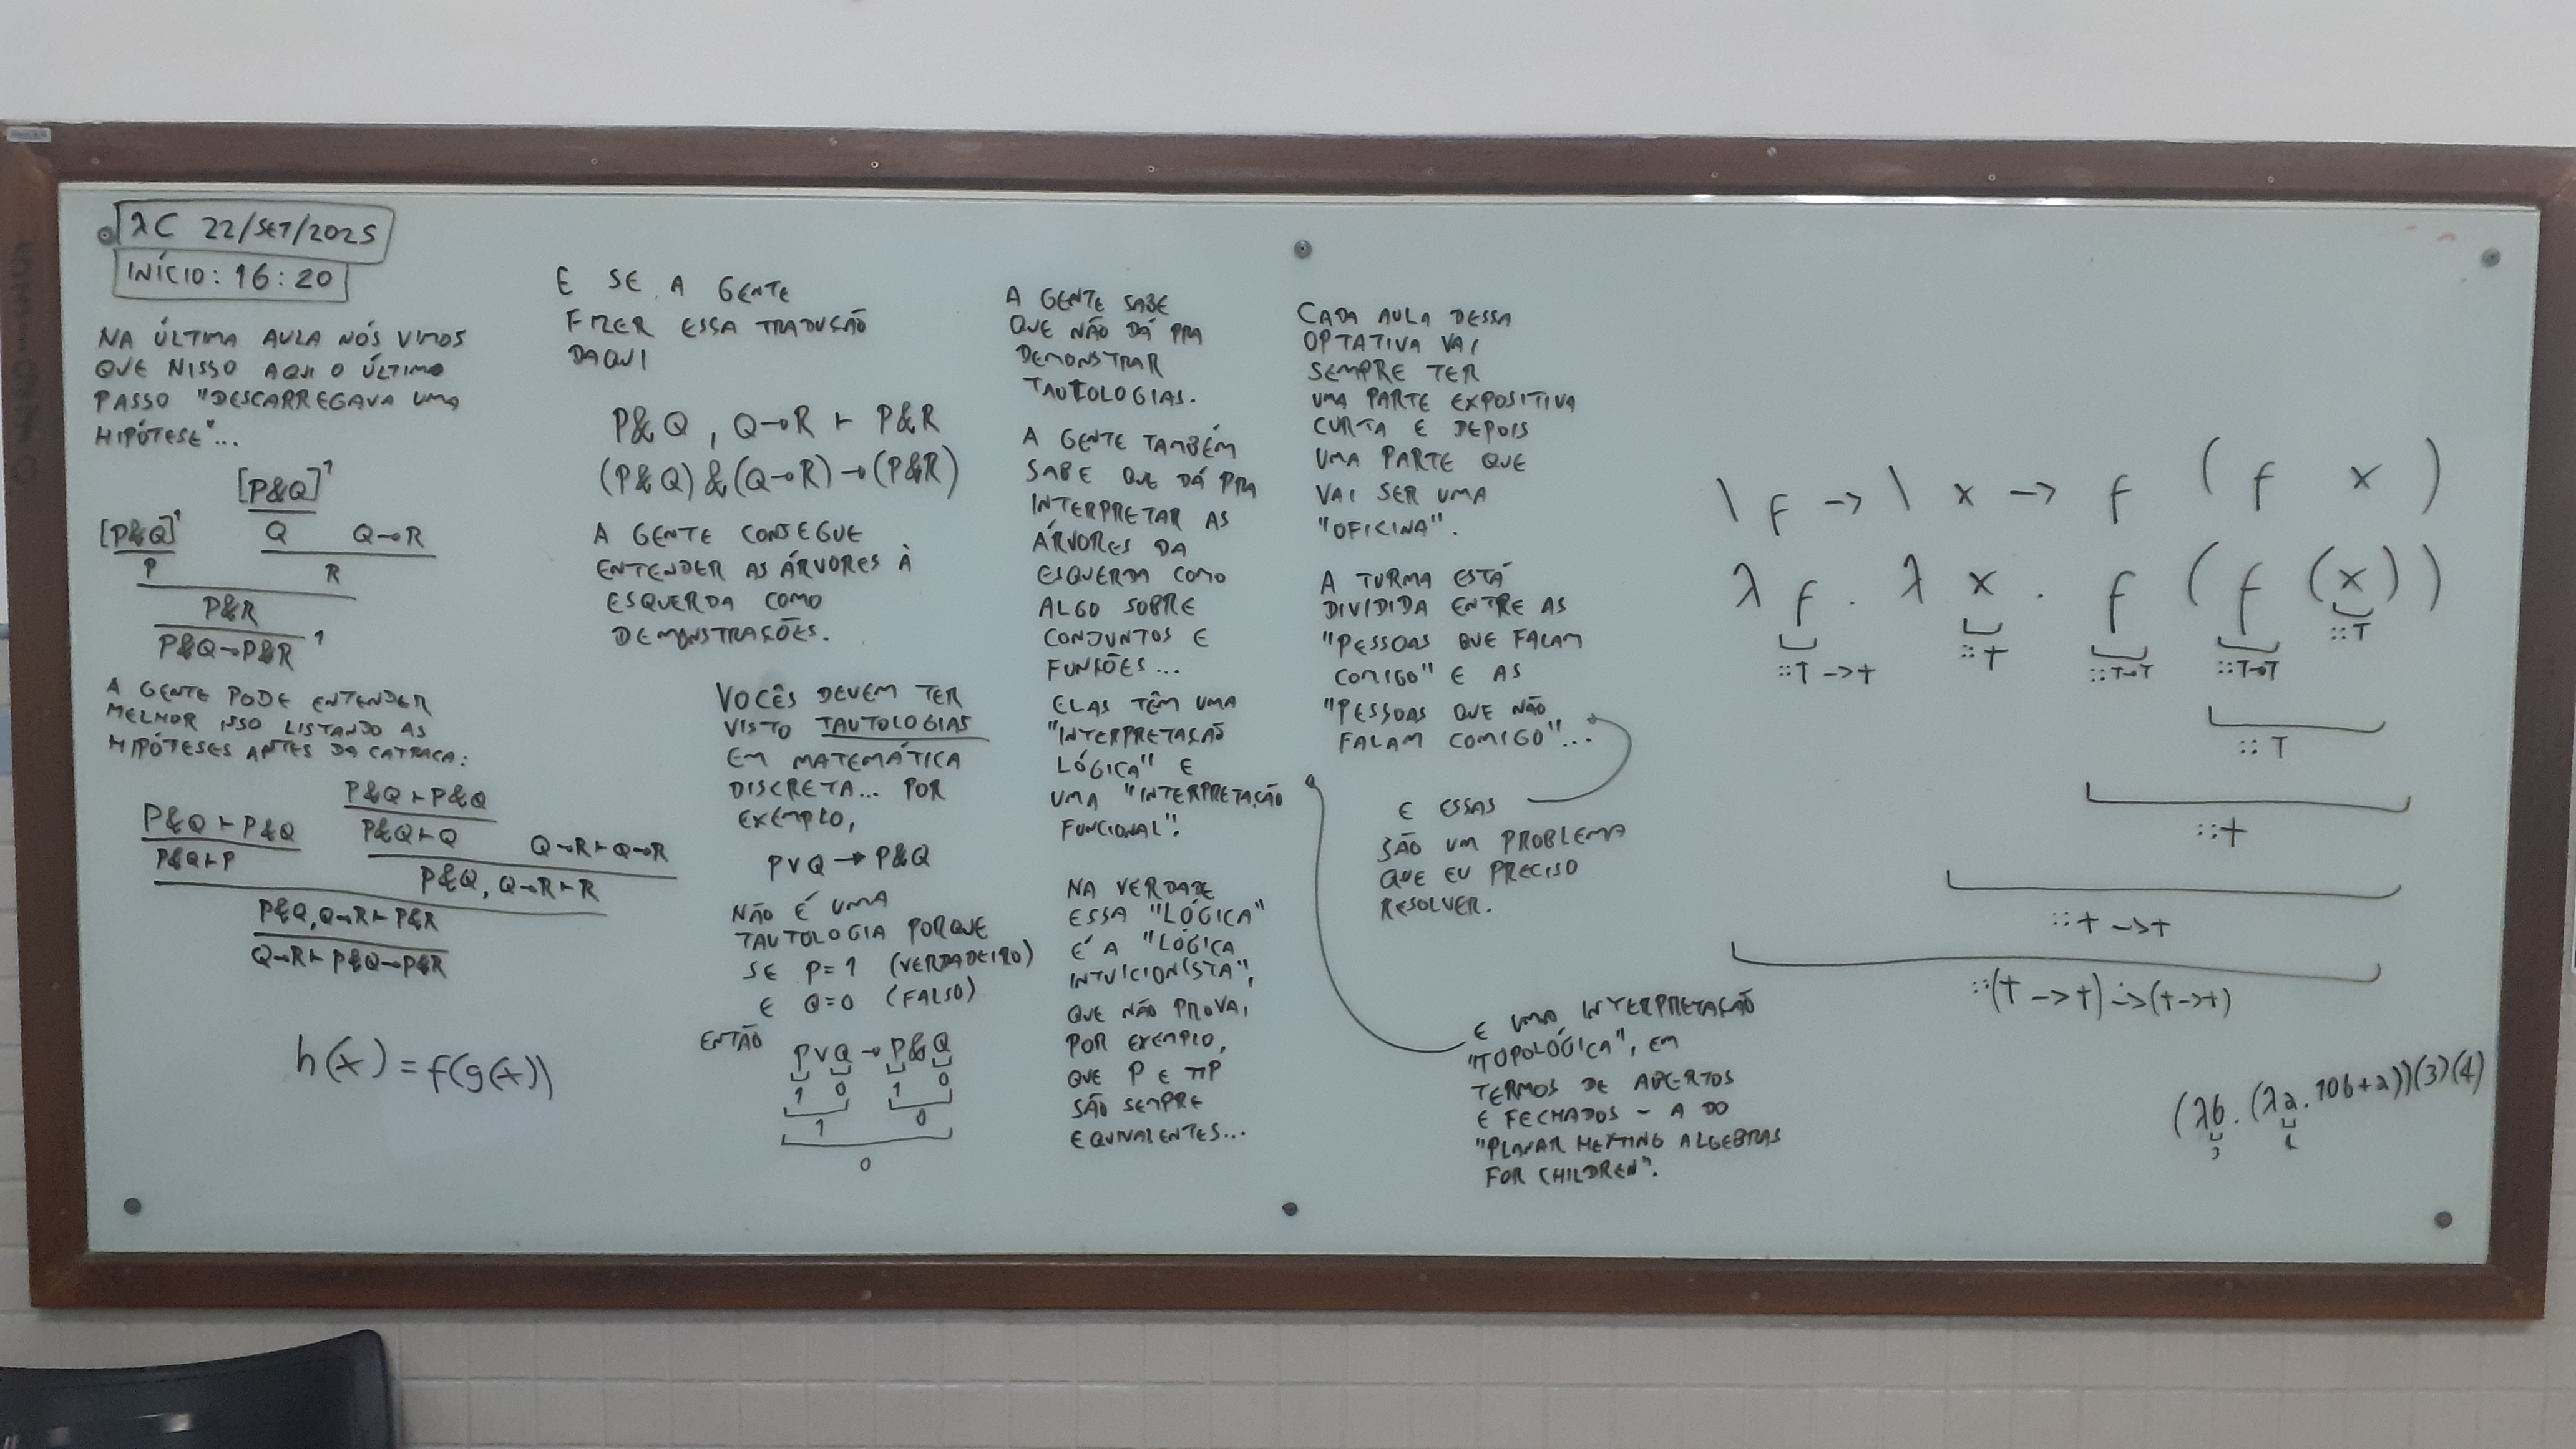 λC 22/SET/2025
INÍCIO: 16:20
NA ÚLTIMA AULA NÓS VIMOS
QUE NISSO AQUI O ÚLTIMO
PASSO "DESCARREGAVA UMA
HIPÓTESE"...
[P&Q]¹
[P&Q]¹ Q Q→R
P R
P&R
P&Q→P&R 1
A GENTE PODE ENTENDER
MELHOR ISSO LISTANDO AS
HIPÓTESES ANTES DA CATRACA:
P&Q⊢P&Q
P&Q⊢P&Q P&Q⊢Q Q→R⊢Q→R
P&Q⊢P P&Q, Q→R⊢R
P&Q, Q→R⊢P&R
Q→R⊢P&Q→P&R
h(x) = f(g(x))
E SE A GENTE
FIZER ESSA TRADUÇÃO
DAQUI
P&Q, Q→R ⊢ P&R
(P&Q)&(Q→R)→(P&R)
A GENTE CONSEGUE
ENTENDER AS ÁRVORES À
ESQUERDA COMO
DEMONSTRAÇÕES.
VOCÊS DEVEM TER
VISTO TAUTOLOGIAS
EM MATEMÁTICA
DISCRETA... POR
EXEMPLO,
P∨Q → P&Q
NÃO É UMA
TAUTOLOGIA PORQUE
SE P=1 (VERDADEIRO)
E Q=0 (FALSO)
ENTÃO P∨Q → P&Q
1 0 1 0
1 0
0
A GENTE SABE
QUE NÃO DÁ PRA
DEMONSTRAR
TAUTOLOGIAS.
A GENTE TAMBÉM
SABE QUE DÁ PRA
INTERPRETAR AS
ÁRVORES DA
ESQUERDA COMO
ALGO SOBRE
CONJUNTOS E
FUNÇÕES...
ELAS TÊM UMA
"INTERPRETAÇÃO
LÓGICA" E
UMA "INTERPRETAÇÃO
FUNCIONAL".
NA VERDADE
ESSA "LÓGICA"
É A "LÓGICA
INTUICIONISTA",
QUE NÃO PROVA,
POR EXEMPLO,
QUE P E ¬¬P
SÃO SEMPRE
EQUIVALENTES...
CADA AULA DESSA
OPTATIVA VAI
SEMPRE TER
UMA PARTE EXPOSITIVA
CURTA E DEPOIS
UMA PARTE QUE
VAI SER UMA
"OFICINA".
A TURMA ESTÁ
DIVIDIDA ENTRE AS
"PESSOAS QUE FALAM
COMIGO" E AS
"PESSOAS QUE NÃO
FALAM COMIGO"...
E ESSAS
SÃO UM PROBLEMA
QUE EU PRECISO
RESOLVER.
E UMA INTERPRETAÇÃO
"TOPOLÓGICA", EM
TERMOS DE ABERTOS
E FECHADOS - A DO
"PLANAR HEYTING ALGEBRAS
FOR CHILDREN".
\ f -> \ x -> f ( f x )
λ f . λ x . f ( f (x) )
::T
::T -> T ::T ::T→T ::T→T
:: T
::T
::T -> T
::(T -> T) -> (T->T)
(λb. (λa. 10b+a))(3)(4)